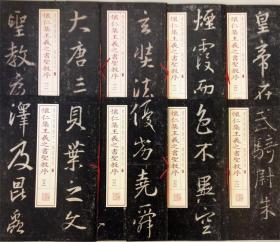 皇帝在
懷仁集王羲之書聖教序
煙霞而
懷仁集王羲之書聖教序
玄奘法
懷仁集王羲之書聖教序
大唐三
懷仁集王羲之書聖教序
聖教序
武騎尉朱
懷仁集王羲之書聖教序
色不異空
懷仁集王羲之書聖教序
優劣堯舜
懷仁集王羲之書聖教序
貝葉之文
懷仁集王羲之書聖教序
澤及昆蟲